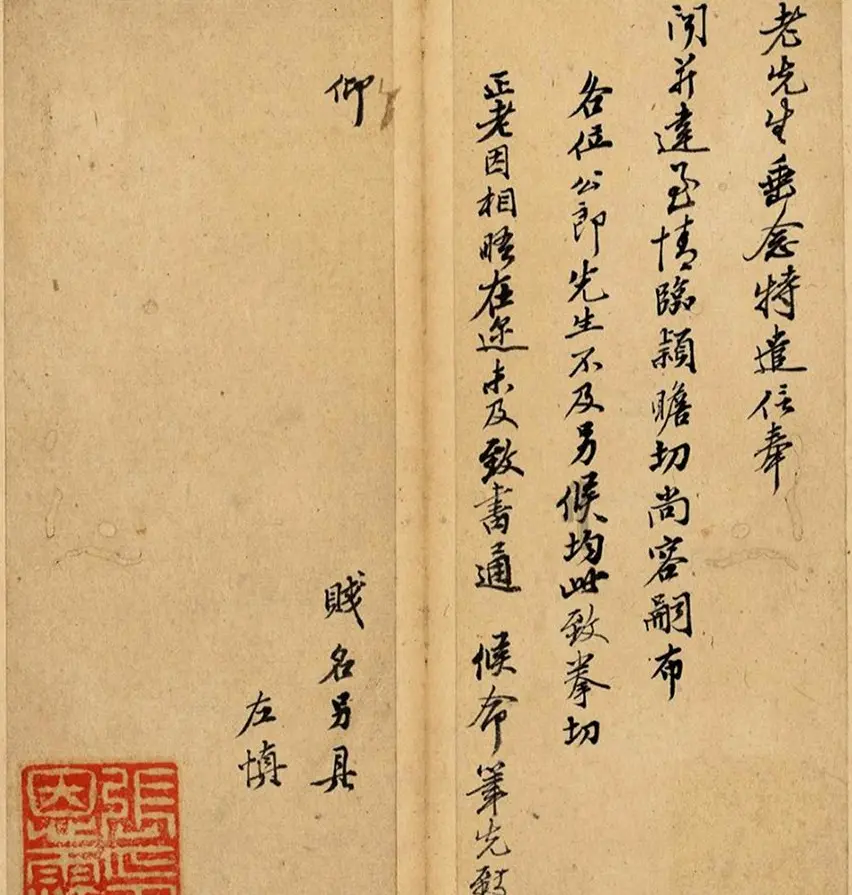 老先生垂念特遣信奉
聞并達至情臨穎瞻切尚容嗣布
各位公郎先生不及另候均此致拳切
正老因相晤在迩未及致書通 候命筆先
仰
賤名另具
左慎